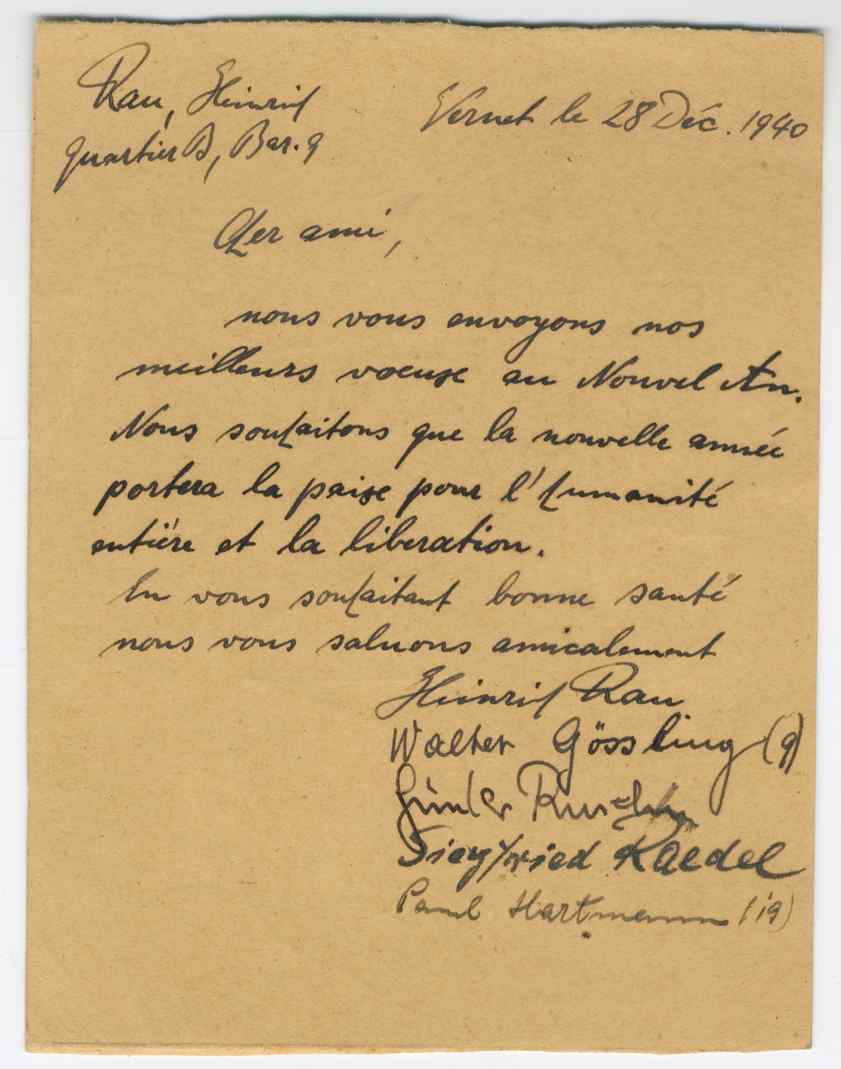 Rau, Heinrich
quartier B, Bar. 9
Vernet le 28 Déc. 1940
Cher ami,
nous vous envoyons nos
meilleurs voeuxe au Nouvel An.
Nous souhaitons que la nouvelle année
portera la paixe pour l'humanité
entière et la liberation.
En vous souhaitant bonne santé
nous vous saluons amicalement
Heinrich Rau
Walter Gössling (9)
Günter
Siegfried Raedel
Paul Hartmann (19)